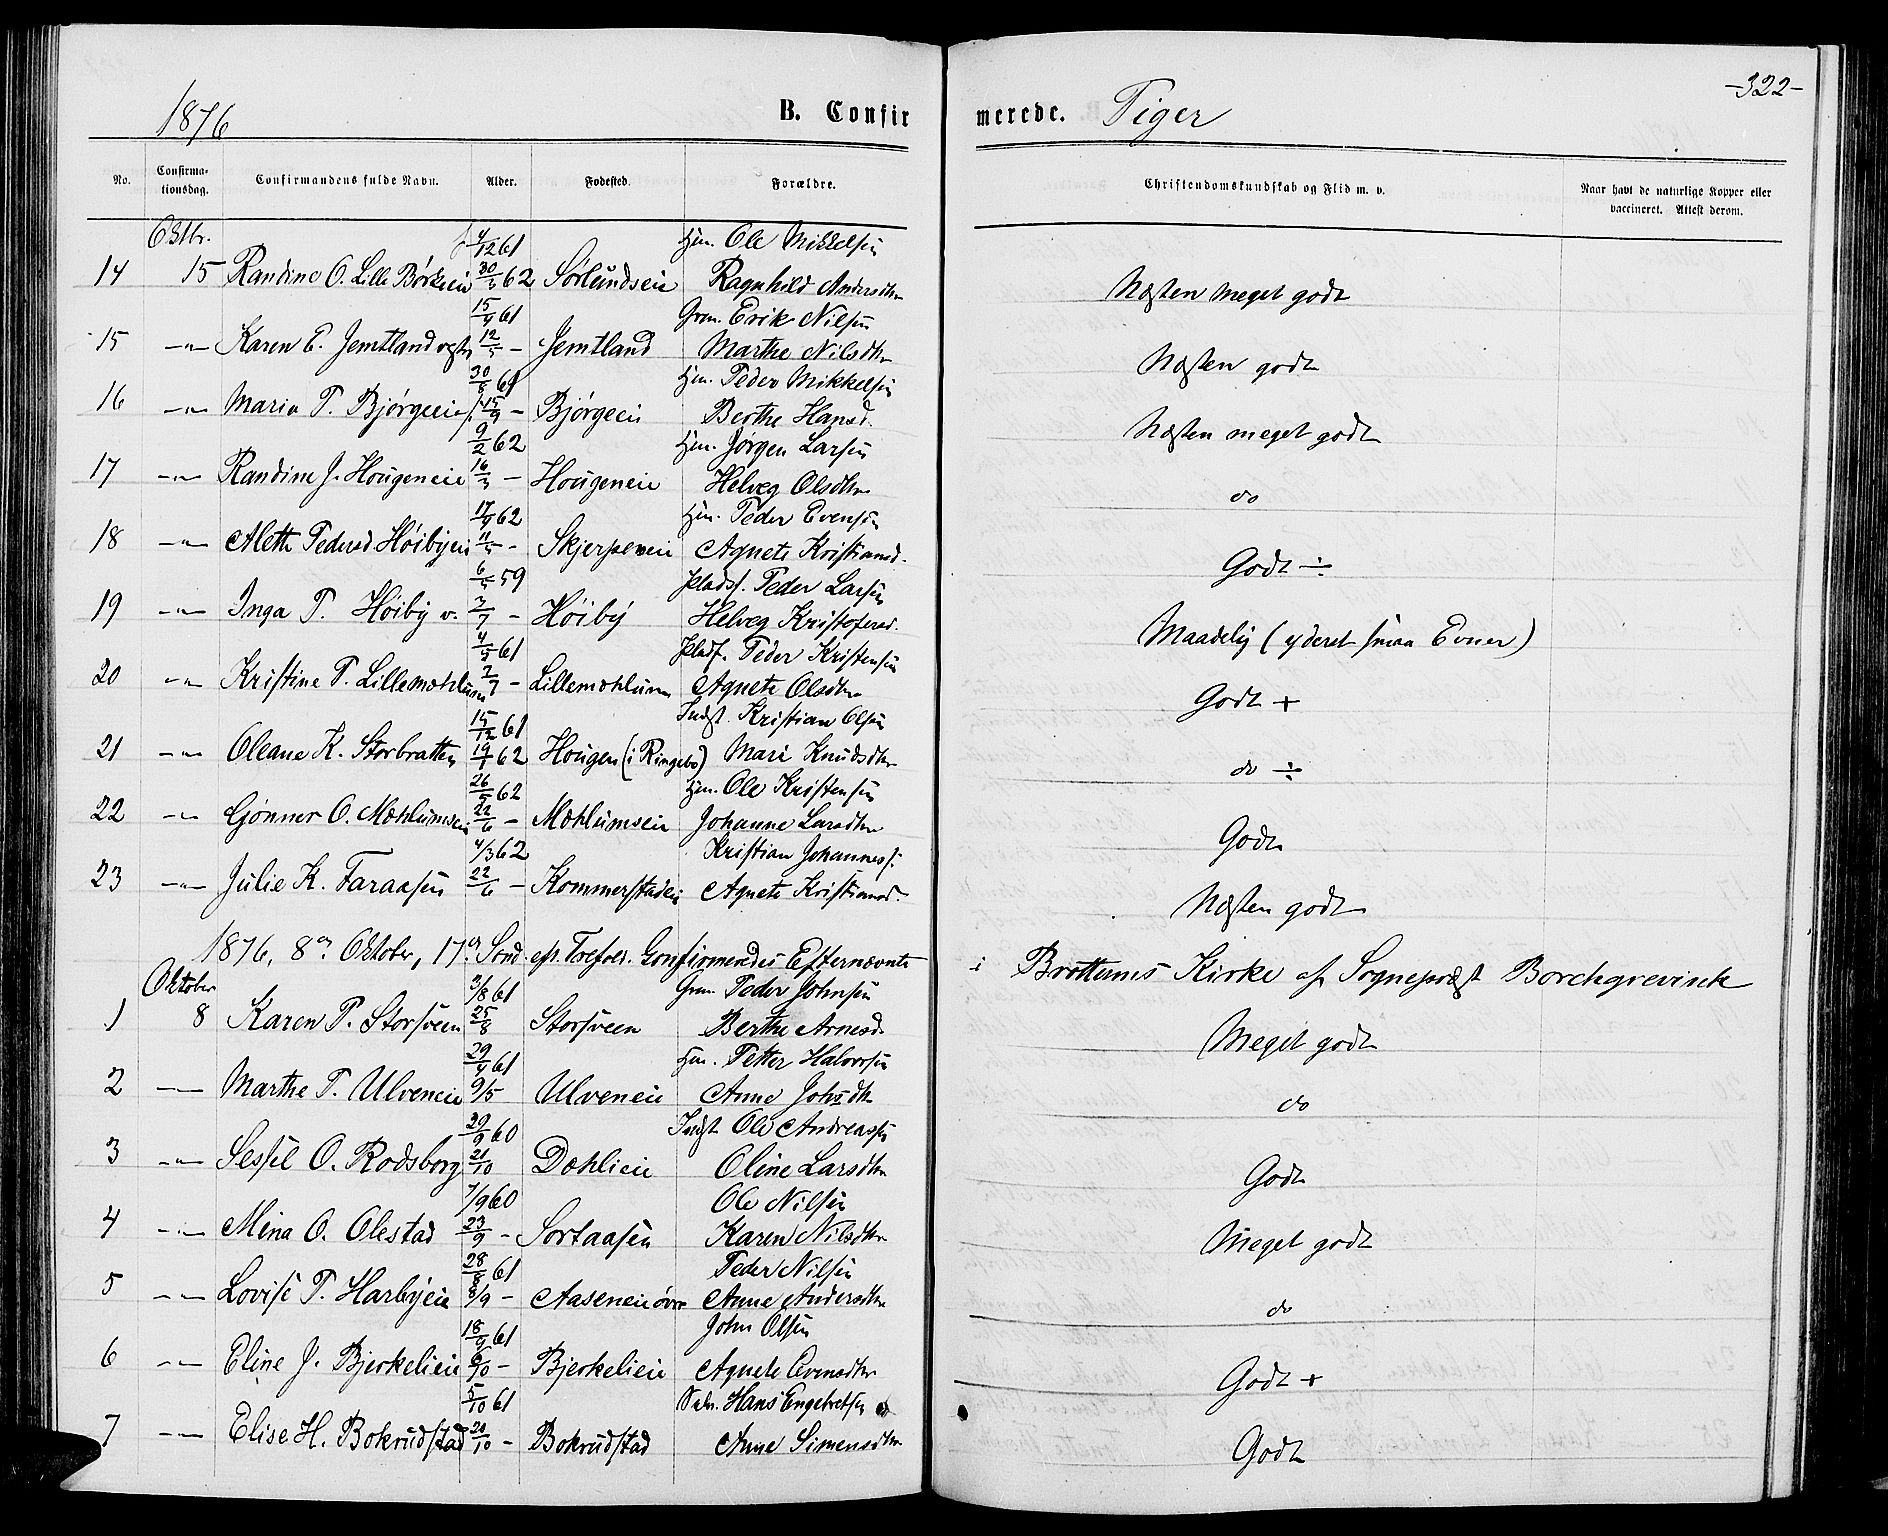 -322-
1876 B. Confirmerede. Piger
No. Confirmationsdag. Confirmandens fulde Navn. Alder. Fødested. Forældre. Christendomskundskab og Flid m. v. Naar havt de naturlige Kopper eller vaccineret. Attest derom.
Oktbr. f 4/12 61 Hm. Ole Mikkelsen
14 15 Randine O. Lille Børkeeie 30/3 62 Sørlundseie Ragnhild Andersdtr Næsten meget godt
15/4 61 Grm. Erik Nilsen
15 -"- Karen E. Jemtland 12/5 - Jemtland Marthe Nilsdtr Næsten godt
30/8 61 Hm. Peder Mikkelsen
16 -"- Maria P. Bjørgeeie 15/9 - Bjørgeeie Berthe Hansd. Næsten meget godt
9/2 62 Hm. Jørgen Larsen
17 -"- Randine J. Hougeneie 16/3 - Hougeneie Helveg Olsdtr do
17/4 62 Hm. Peder Evensen
18 -"- Aleth Pedersd Høibyeie 11/5 - Skjerpeneie Agnete Kristiansd. Godt ÷
6/5 59 Pladsf. Peder Larsen
19 -"- Inga P. Høiby v. 3/7 - Høiby Helveg Kristofersd. Maadelig (yderst smaa Evner)
4/5 61 Pladsf. Peder Kristensen
20 -"- Kristine P. Lillemæhlum 7/7 - Lillemæhlum Agnete Olsdtr Godt +
15/12 61 Indst. Kristian Olsen
21 -"- Oleane K. Storbratten 19/1 62 Hougen (i Ringebo) Mari Knudsdtr do ÷
26/5 62 Hm. Ole Kristensen
22 -"- Gjønner O. Mæhlumseie 22/6 - Mæhlumseie Johanne Larsdtr Godt
4/3 62 Kristian Johanness.
23 -"- Julie K. Faraasen 22/6 - Kommerstadeie Agnete Kristiansd. Næsten godt
1876, 8de Oktober, 17de Sønd. eft. Trefold. Confirmeredes Efternævnte i Brøttums Kirke af Sognepræst Borchgrevink
Oktober 3/8 61 Grm. Peder Johnsen
1 8 Karen P. Storsveen 25/8 Storsveen Berthe Arnesd. Meget godt
29/4 61 Hm. Petter Halvorsen
2 -"- Marthe P. Ulveneie 9/5 Ulveneie Anne Johsdtr do
29/9 60 Indst Ole Andreassen
3 -"- Sessel O. Rodsborg 21/10 Dæhlieie Oline Larsdtr Godt
7/9 60 Ole Nilsen
4 -"- Mina O. Olestad 23/9 - Sortaasen Karen Nilsdtr Meget godt
28/8 61 Peder Nilsen
5 -"- Lovise P. Harbyeie 8/9 - Aaseneie øvre Anne Andersdtr do
18/9 61 John Olsen
6 -"- Eline J. Bjerkelieie 6/10 - Bjerkelieie Agnete Evensdtr Godt +
5/10 61 Hans Engebretsen
7 -"- Elise H. Bokrudstad 20/10 - Bokrudstad Anne Simensdtr Godt